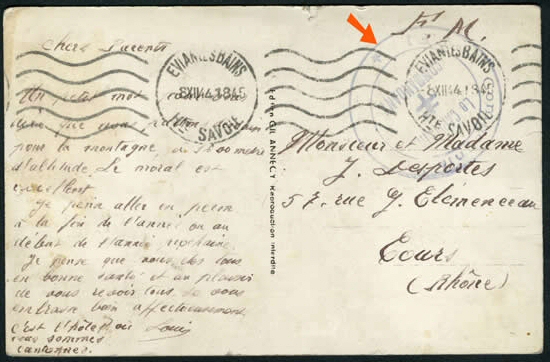 F. M.
Chers Parents
EVIAN LES BAINS
8 XII 41 1845
Hte SAVOIE
EVIAN LES BAINS
8 XII 41 1845
Hte SAVOIE
Un petit mot
pour la montagne
d'altitude. Le moral est
excellent
Je
aller en perm
à la fin de l'année ou au
début de l'année prochaine.
Je pense que vous êtes tous
en bonne santé et au plaisir
de vous revoir tous. Je vous
embrasse bien affectueusement.
C'est l'hôtel où Louis
nous sommes
cantonnés.
ANNECY Reproduction interdite
Monsieur et Madame
J. Desportes
57, rue G. Clémenceau
Cours
(Rhône)